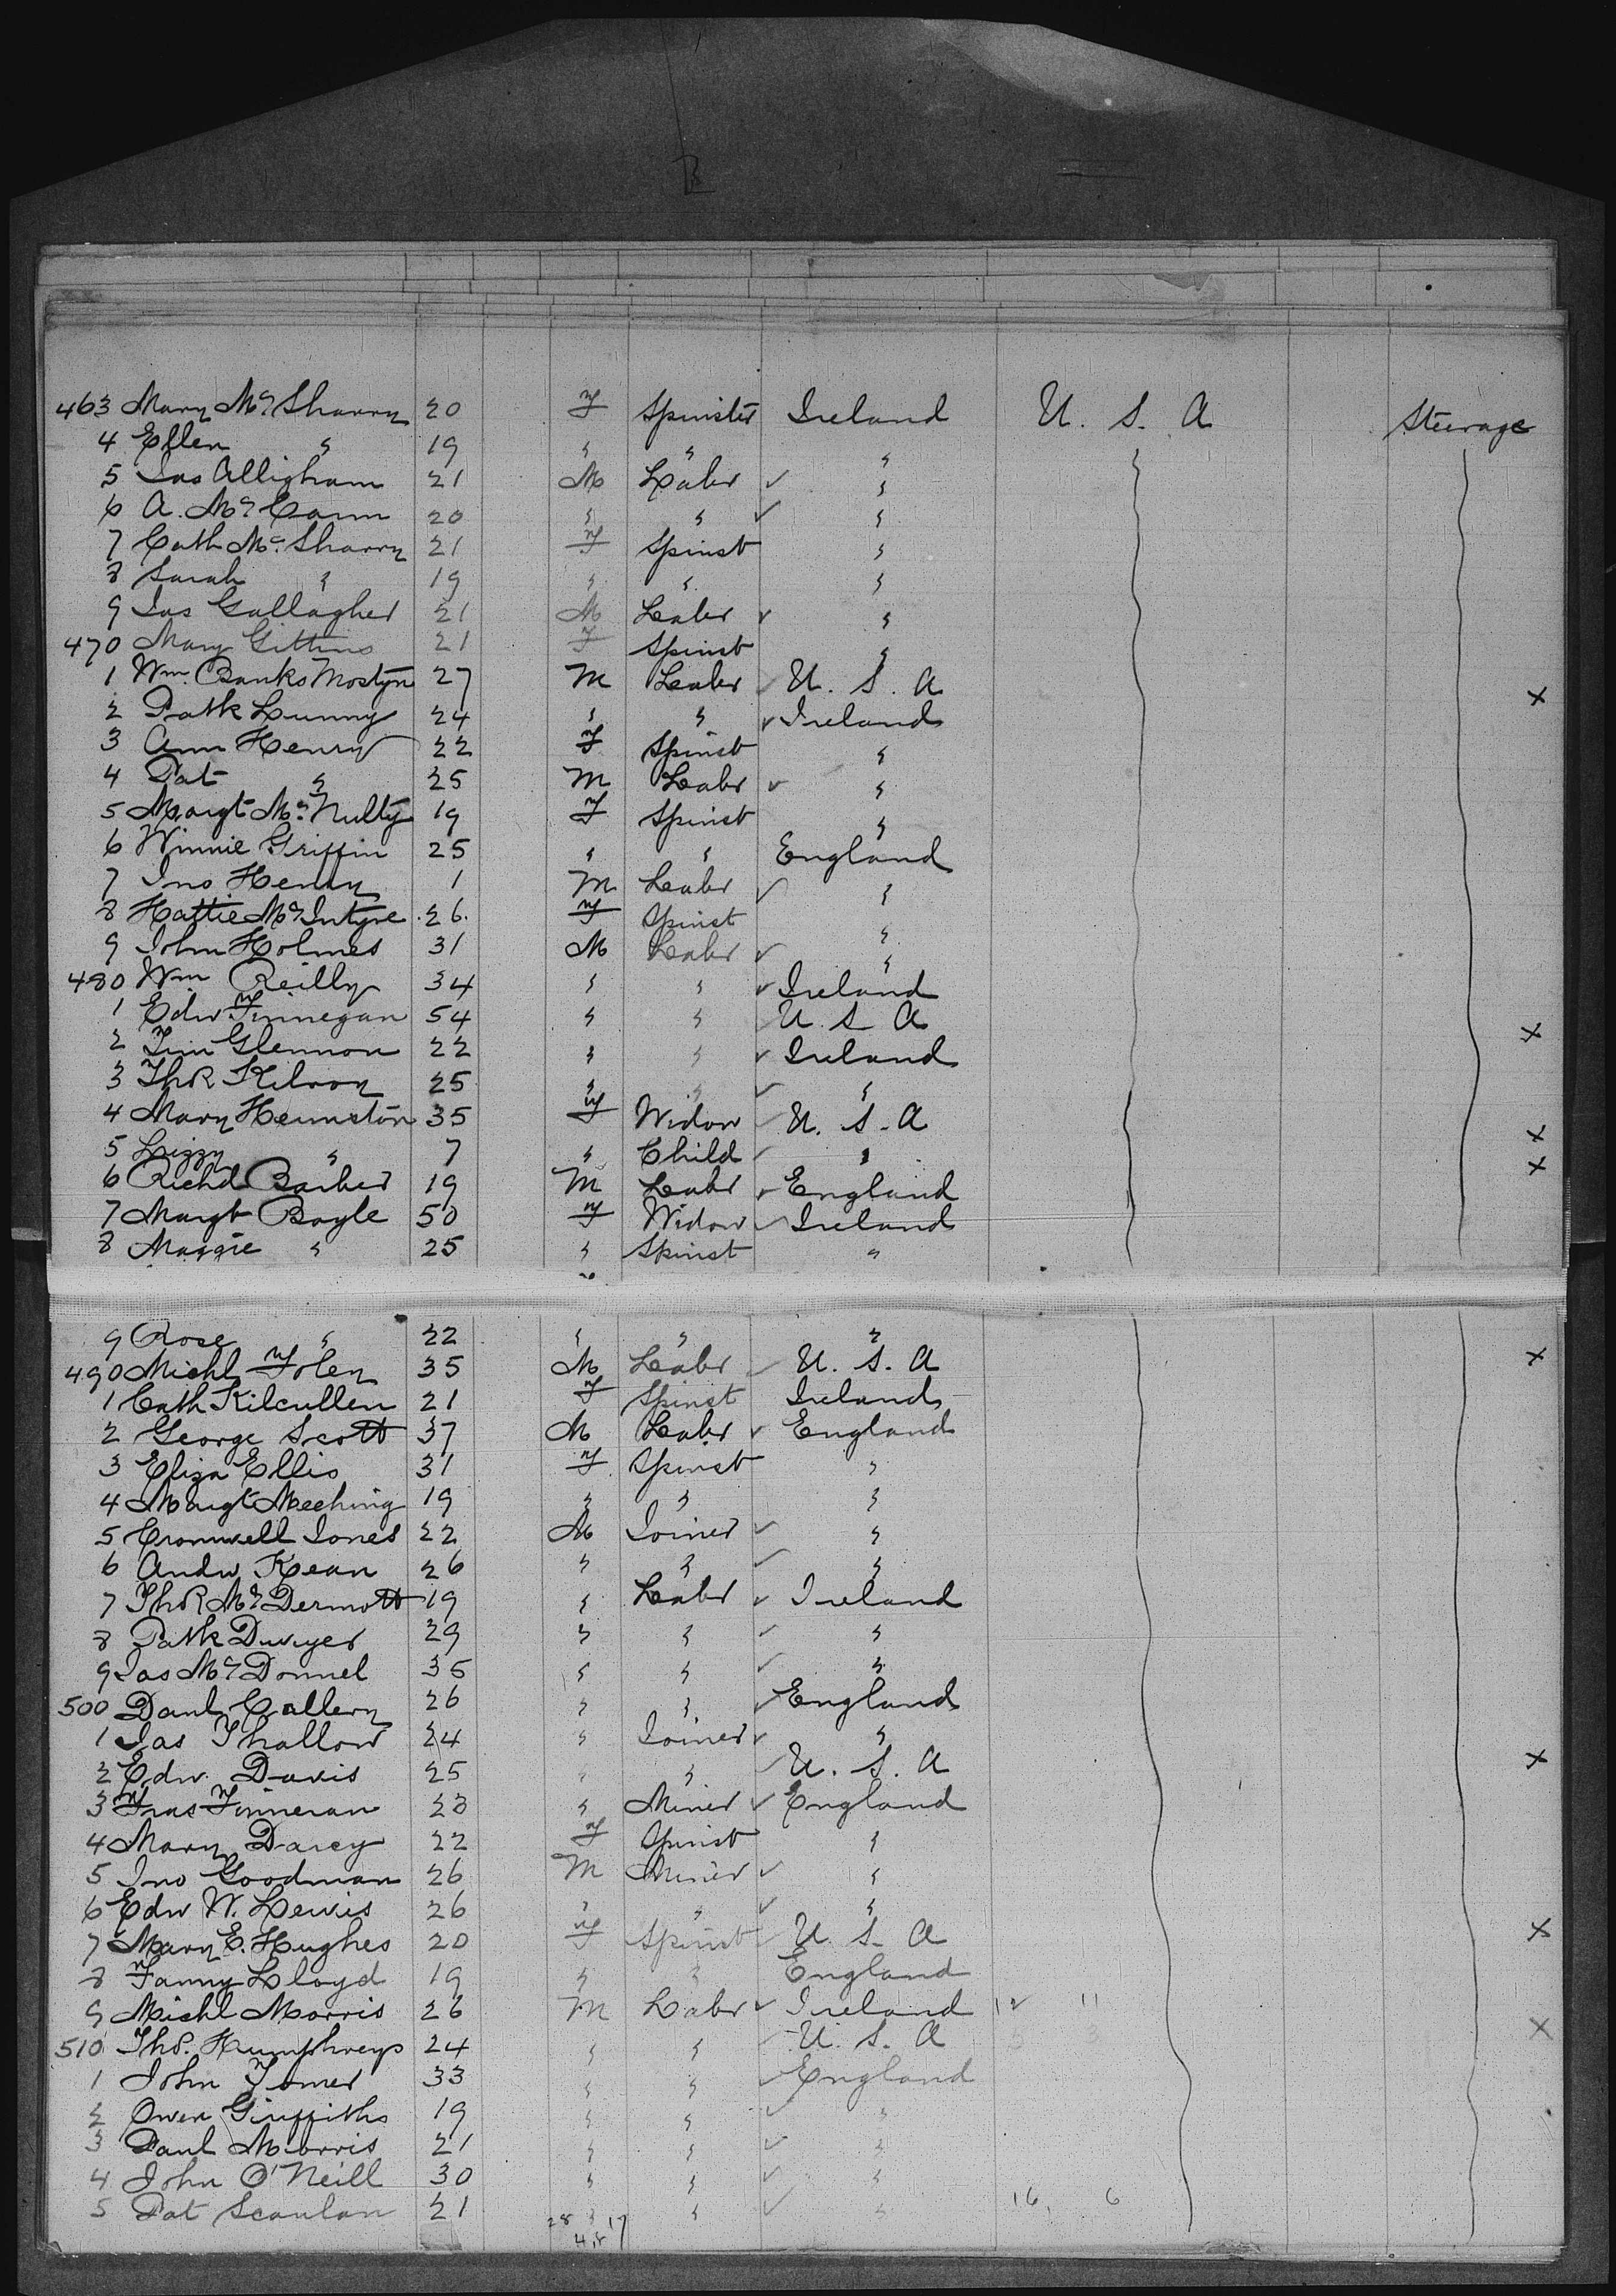 463 Mary Mc Sharry 20 F Spinster Ireland U. S. A Steerage
4 Ellen " 19 " " "
5 Jas Alligham 21 M Labr ✓ "
6 A. Mc Cann 20 " " ✓ "
7 Cath Mc Sharry 21 F Spinst "
8 Sarah " 19 " " "
9 Jas Gallagher 21 M Labr ✓ "
470 Mary Gittins 21 F Spinst "
1 Wm. Banks Mostyn 27 M Labr ✓ U. S. A x
2 Patk Lunny 24 " " ✓ Ireland
3 Ann Henry 22 F Spinst "
4 Pat " 25 M Labr ✓ "
5 Margt Mc Nulty 19 F Spinst "
6 Winnie Griffin 25 " " England
7 Jno Henry 1 M Labr ✓ "
8 Hattie Mc Intyre 26 F Spinst "
9 John Holmes 31 M Labr ✓ "
480 Wm Reilly 34 " " ✓ Ireland
1 Edw Finnegan 54 " " U. S A x
2 Jim Glennon 22 " " ✓ Ireland
3 Thos Kilroy 25 " " ✓ "
4 Mary Hemston 35 F Widow ✓ U. S. A x
5 Lizzy " 7 " Child ✓ " x
6 Richd Barber 19 M Labr ✓ England
7 Margt Boyle 50 F Widow ✓ Ireland
8 Maggie " 25 " Spinst "
9 Rose " 22 " " "
490 Michl Foley 35 M Labr ✓ U. S. A x
1 Cath Kilcullen 21 F Spinst Ireland
2 George Scott 37 M Labr ✓ England
3 Eliza Ellis 31 F Spinst "
4 Margt Meehing 19 " " "
5 Cromwell Jones 22 M Joiner ✓ "
6 Andw Kean 26 " " ✓ "
7 Thos Mc Dermott 19 " Labr ✓ Ireland
8 Patk Dwyer 29 " " ✓ "
9 Jas Mc Donnel 35 " " ✓ "
500 Danl Callery 26 " " ✓ England
1 Jas Thallow 24 " Joiner ✓ "
2 Edw. Davis 25 " " ✓ U. S. A x
3 Fras Finneran 28 " Miner ✓ England
4 Mary Darcy 22 F Spinst "
5 Jno Goodman 26 M Miner ✓ "
6 Edw W. Lewis 26 " " ✓ "
7 Mary E. Hughes 20 F Spinst ✓ U. S. A x
8 Fanny Lloyd 19 " " England
9 Michl Morris 26 M Labr ✓ Ireland 12 11
510 Thos. Humphreys 24 " " ✓ U. S. A x
1 John Tomer 33 " " ✓ England
2 Owen Griffiths 19 " " ✓ "
3 Paul Morris 21 " " ✓ "
4 John O'Neill 30 " " ✓ "
5 Pat Scanlan 21 " " ✓ " 16 6
28 17